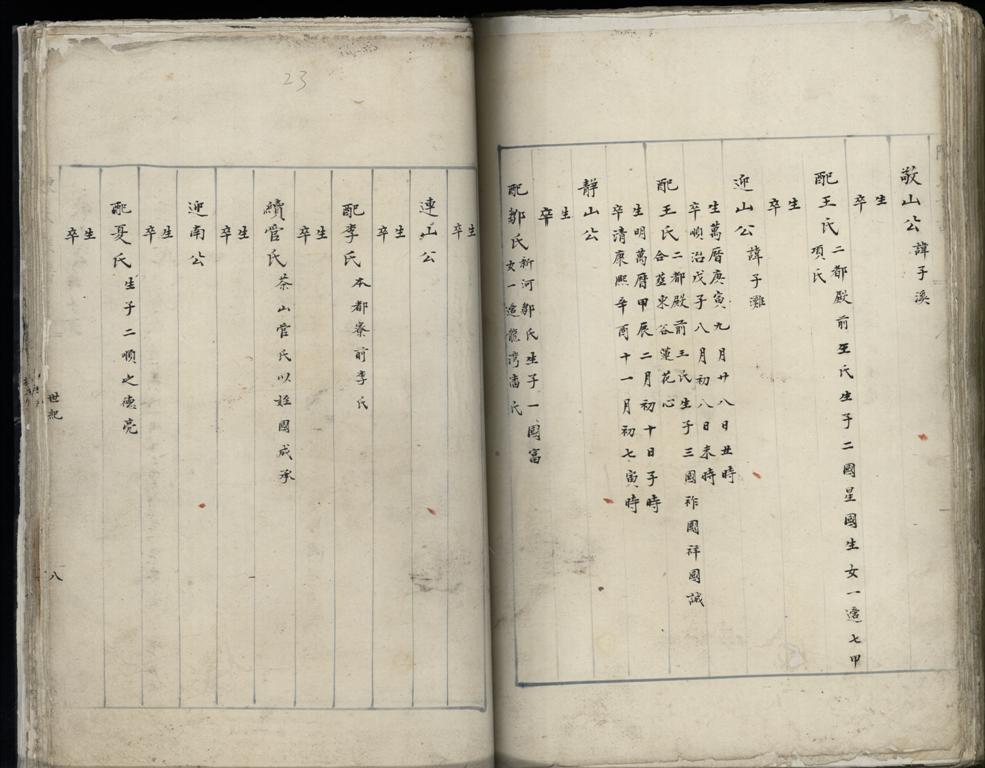 敬山公諱子溪
生
卒
配王氏二都殿前王氏生子二國星國生女一適七甲
項氏
生
卒
迎山公諱子灘
生萬曆庚寅九月廿八日丑時
卒順治戊子八月初八日未時
配王氏二都殿前王氏生子三國祚國祥國誠
合葬東谷蓮花心
生明萬曆甲辰二月初十日子時
卒清康熙辛酉十一月初七寅時
靜山公
生
卒
配鄒氏新河鄒氏生子一國富
女一適龍灣潘氏
生
卒
連山公
生
卒
配李氏本都寮前李氏
生
卒
續管氏茶山管氏以姪國成承
生
卒
迎南公
生
卒
配夏氏生子二順之德亮
生
卒
世紀
八
23